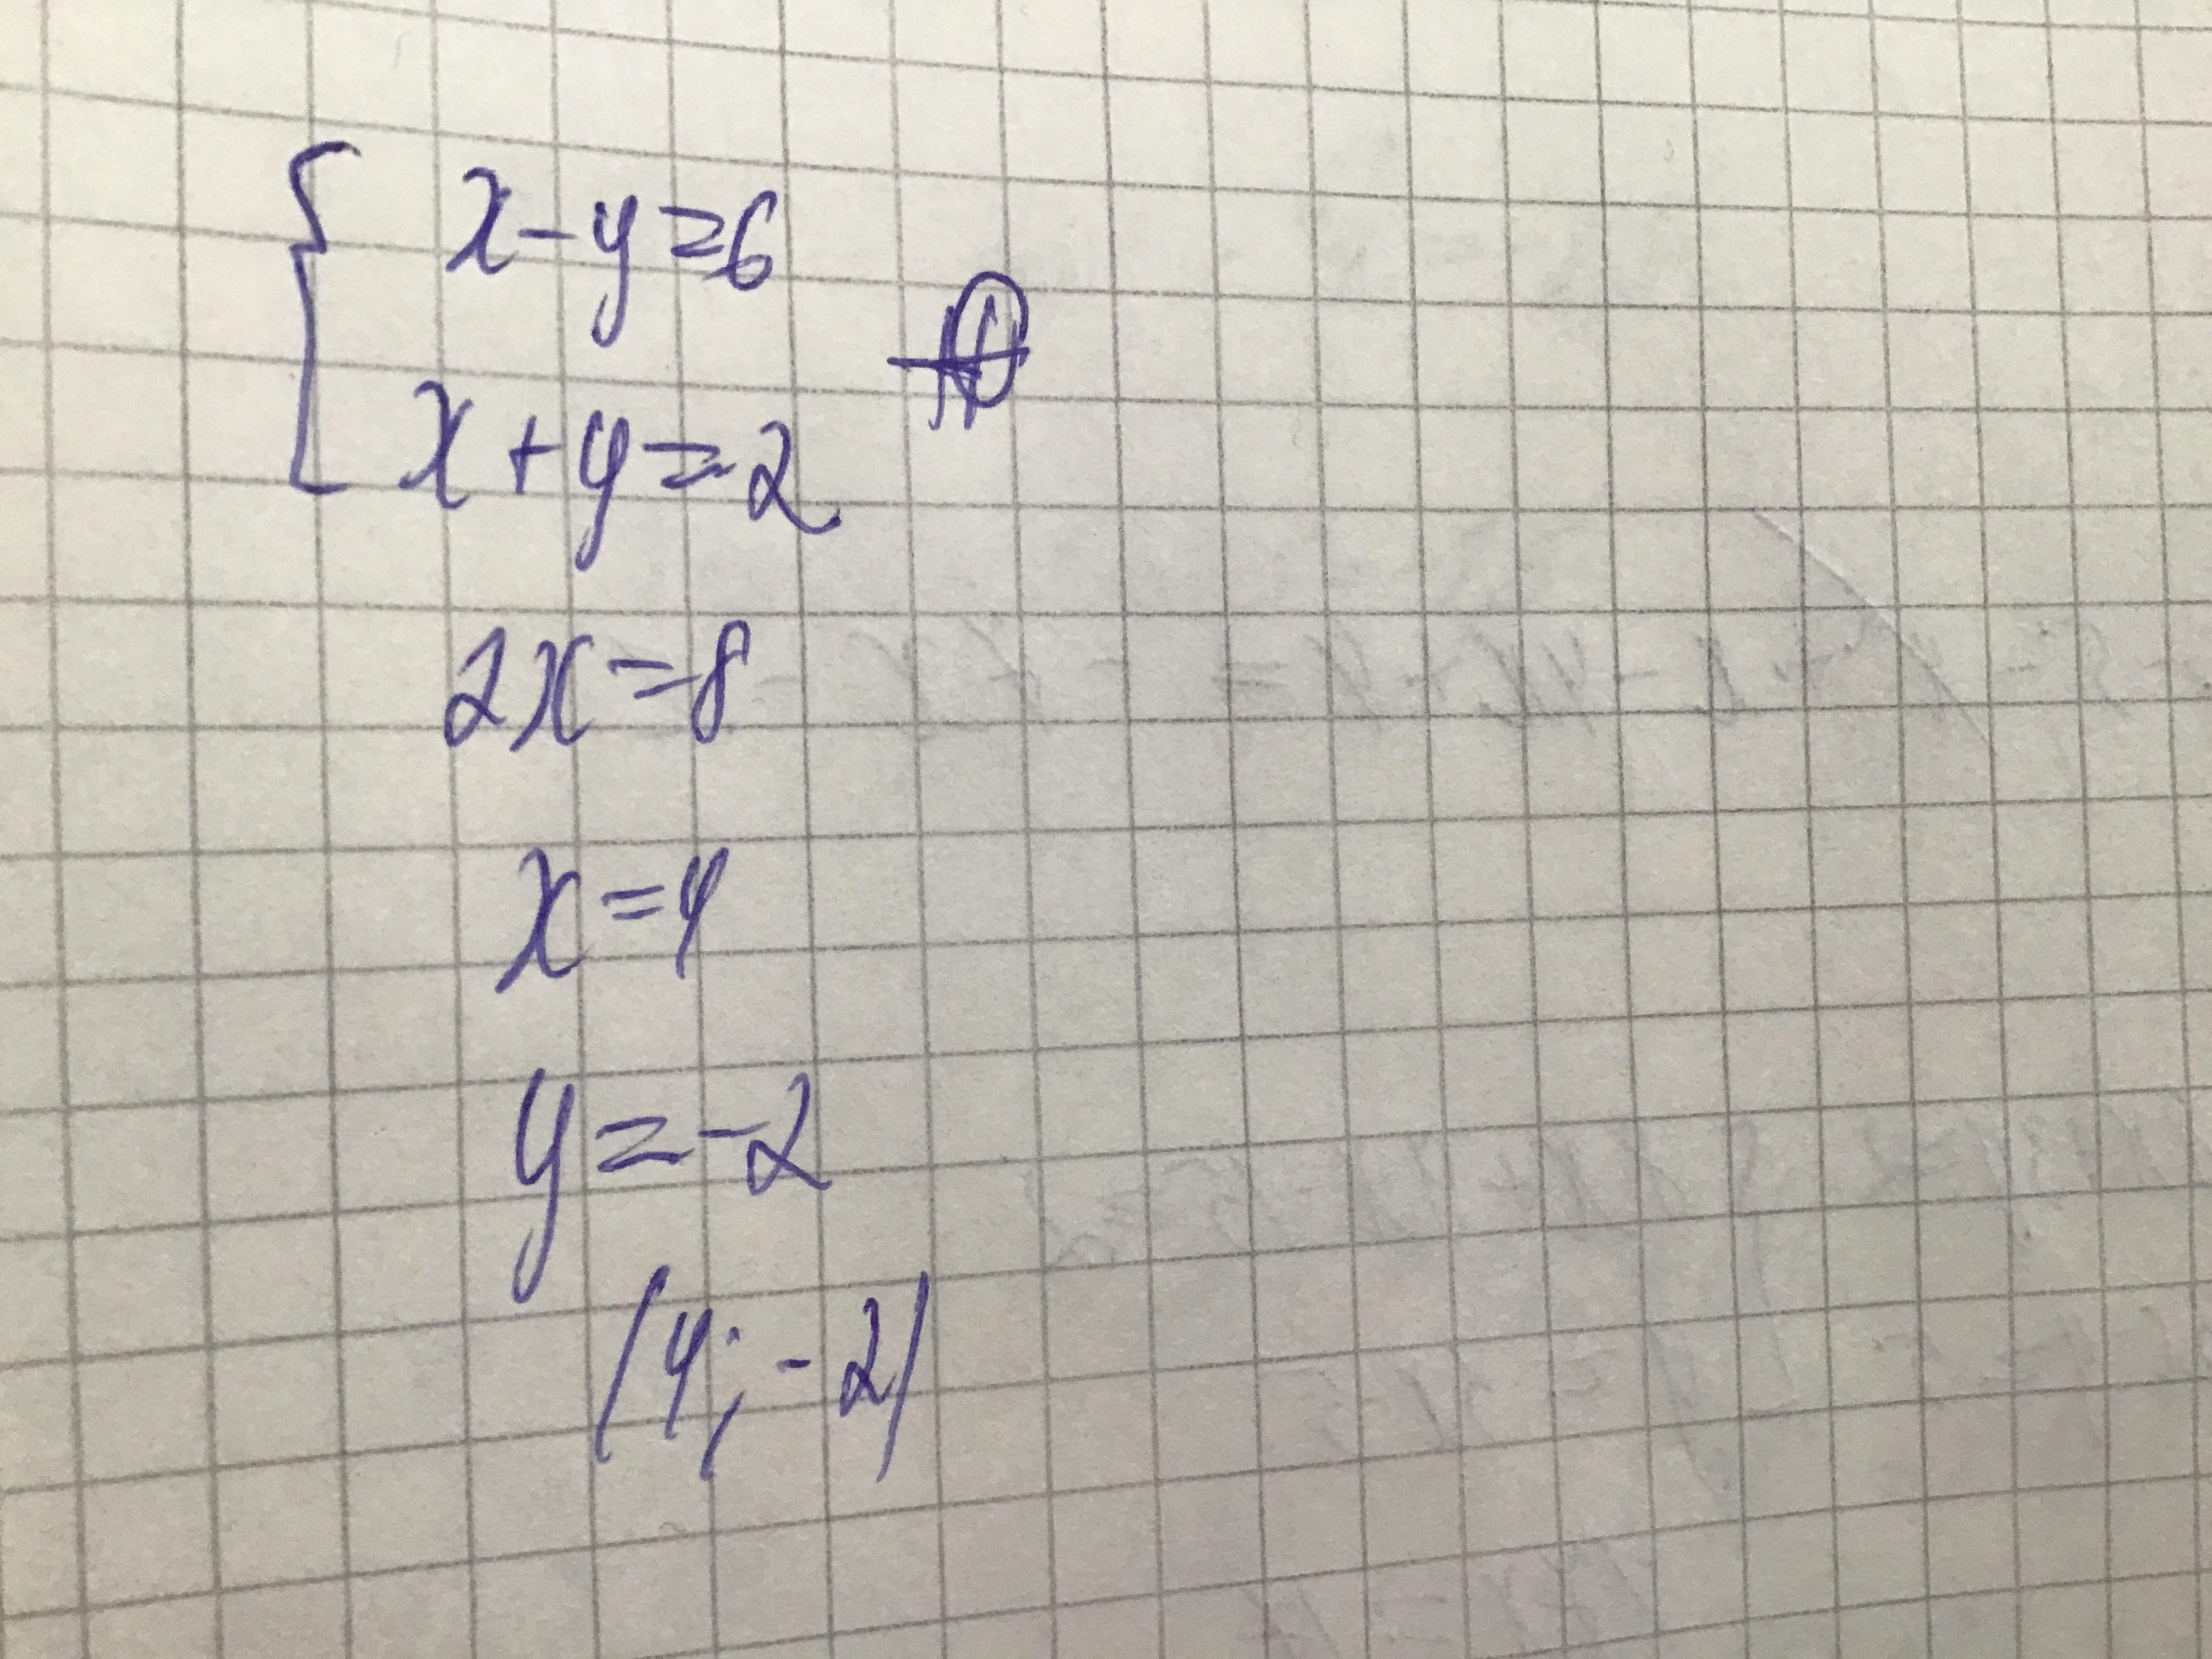 x-y=6
x+y=2
2x=8
x=4
y=-2
(4;-2)